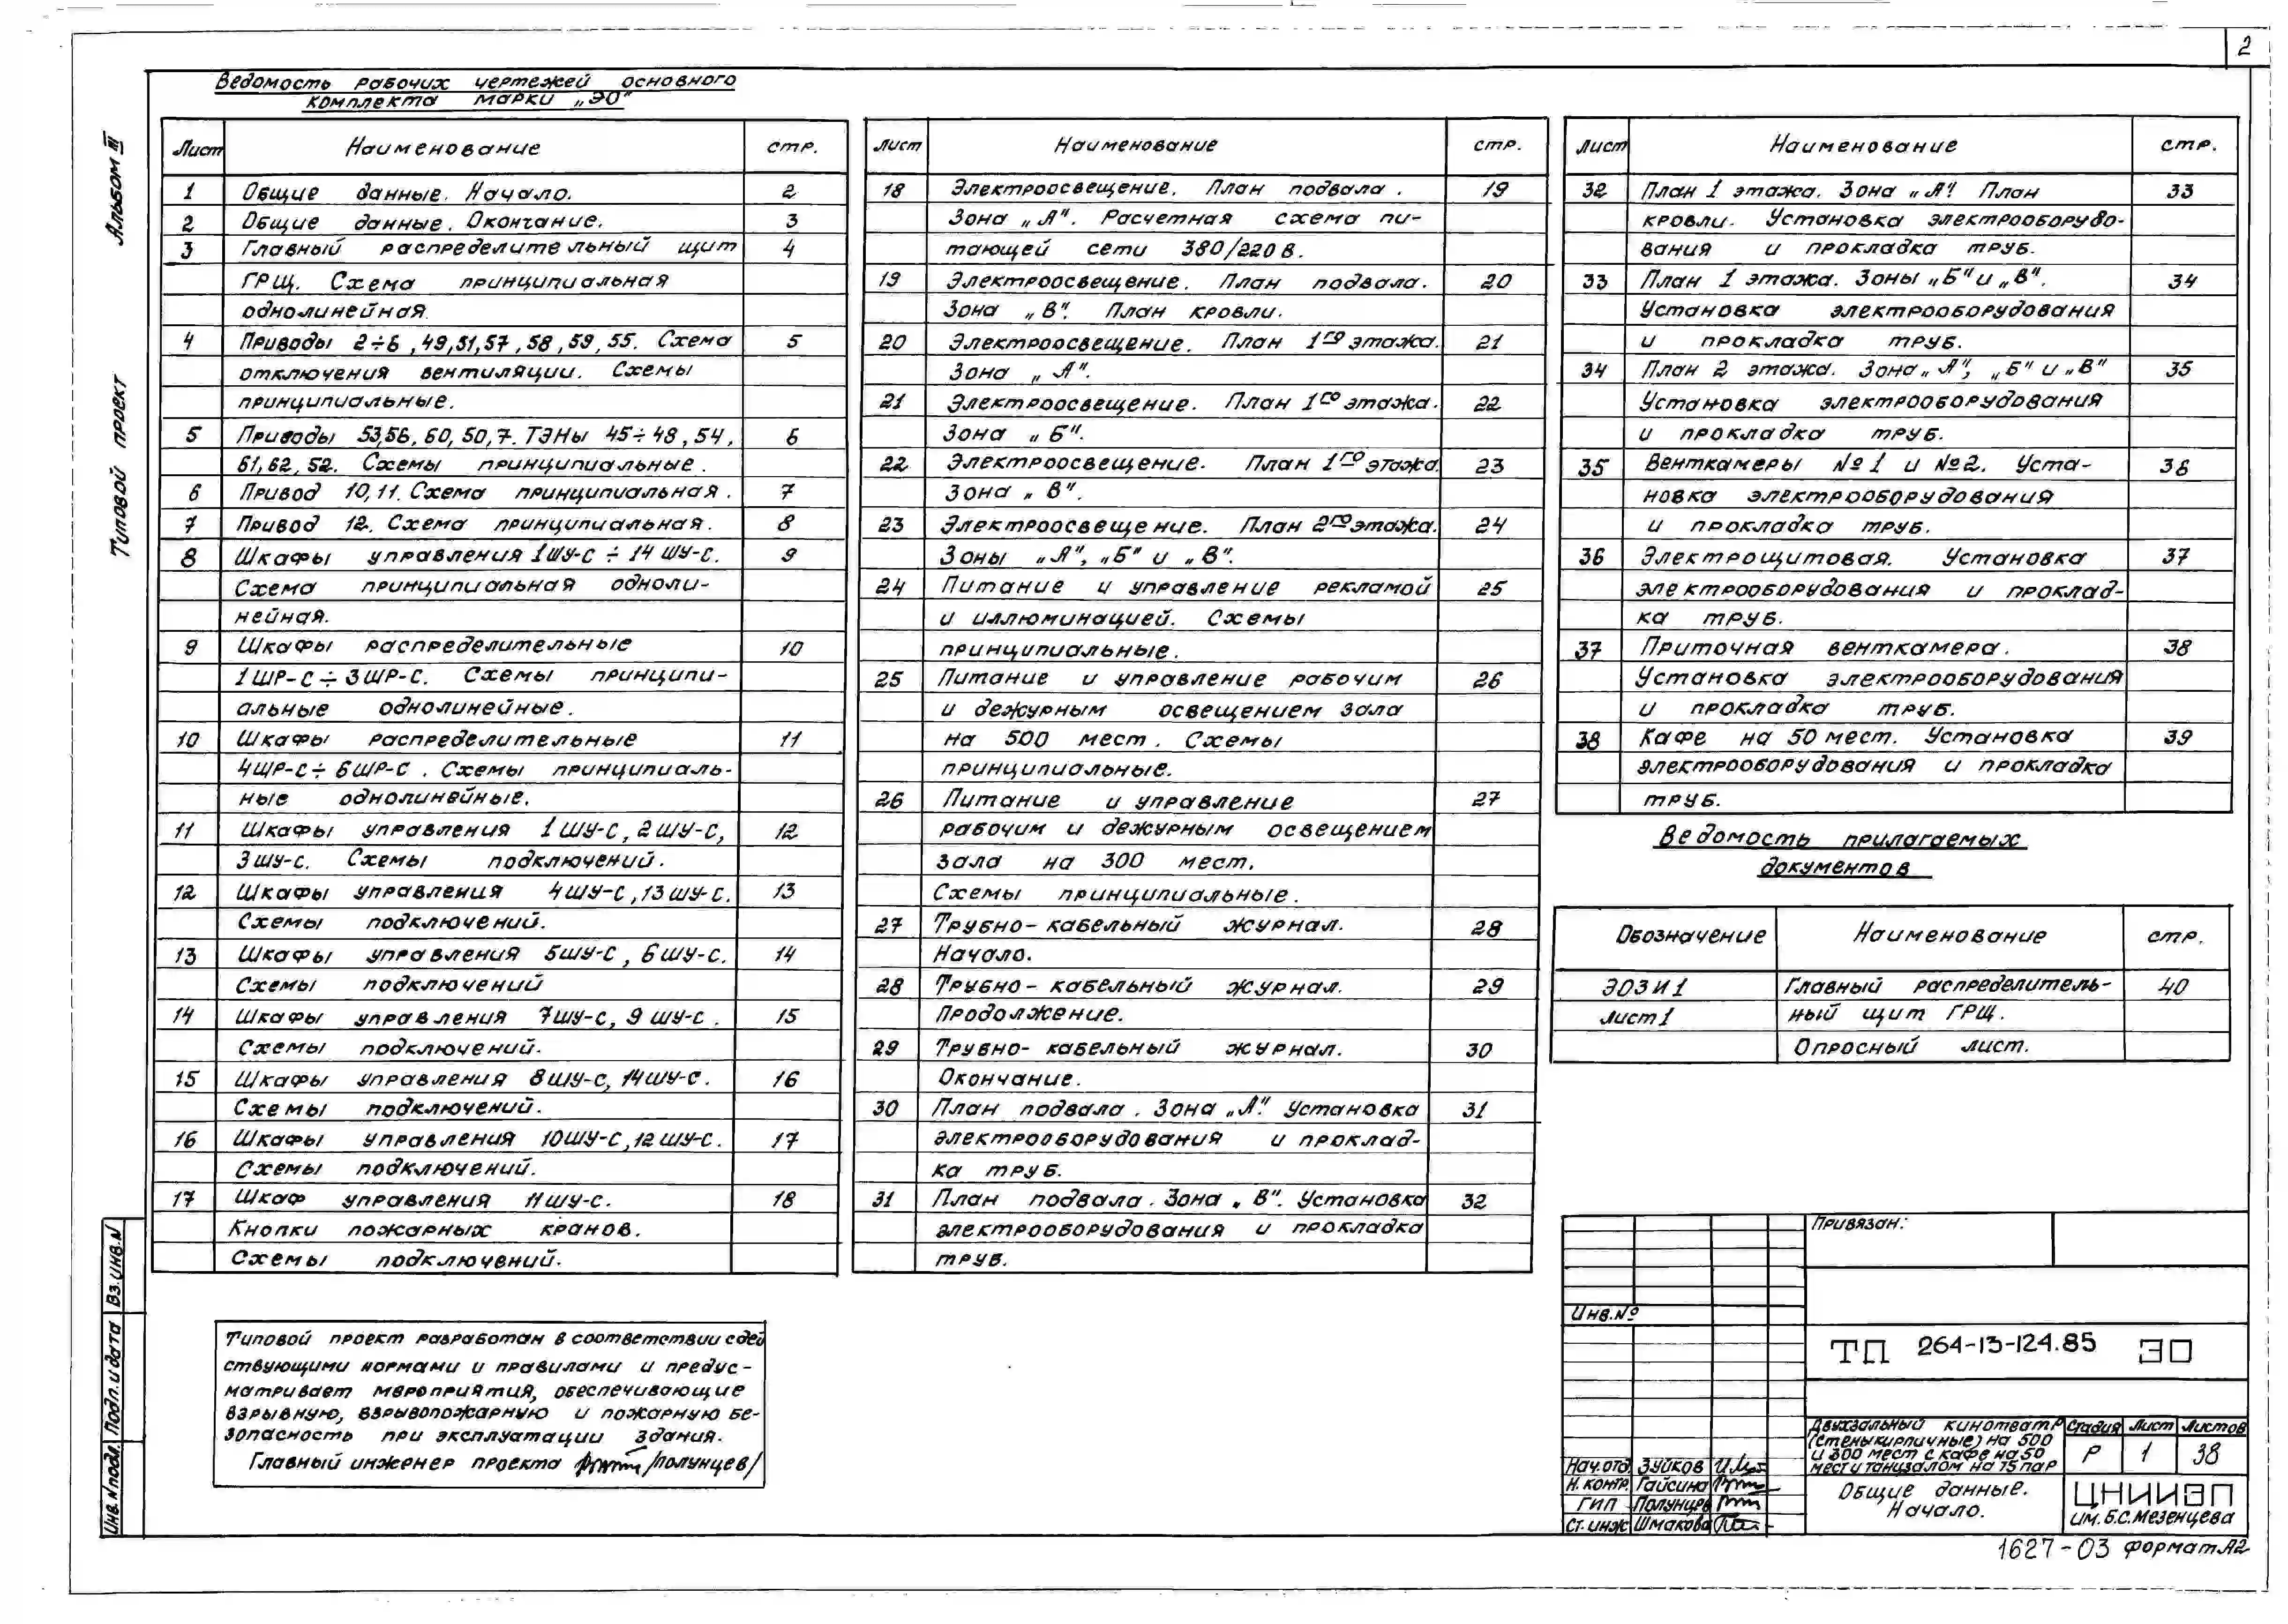 2
Альбом III
Типовой проект
Ведомость рабочих чертежей основного
комплекта марки „ЭО"
Лист Наименование стр.
1 Общие данные. Начало. 2
2 Общие данные. Окончание. 3
3 Главный распределительный щит 4
ГРЩ. Схема принципиальная
однолинейная.
4 Приводы 2÷6, 49,51,57, 58, 59, 55. Схема 5
отключения вентиляции. Схемы
принципиальные.
5 Приводы 53,56, 60, 50,7. ТЭНы 45÷48, 54, 6
61, 62, 52. Схемы принципиальные.
6 Привод 10, 11. Схема принципиальная. 7
7 Привод 12. Схема принципиальная. 8
8 Шкафы управления 1ШУ-С ÷ 14 ШУ-С. 9
Схема принципиальная одноли-
нейная.
9 Шкафы распределительные 10
1ШР-С ÷ 3ШР-С. Схемы принципи-
альные однолинейные.
10 Шкафы распределительные 11
4ШР-С÷ 6ШР-С. Схемы принципиаль-
ные однолинейные.
11 Шкафы управления 1ШУ-С, 2ШУ-С, 12
3ШУ-С. Схемы подключений.
12 Шкафы управления 4ШУ-С, 13ШУ-С. 13
Схемы подключений.
13 Шкафы управления 5ШУ-С, 6ШУ-С. 14
Схемы подключений
14 Шкафы управления 7ШУ-С, 9 ШУ-С. 15
Схемы подключений.
15 Шкафы управления 8ШУ-С, 14ШУ-С. 16
Схемы подключений.
16 Шкафы управления 10ШУ-С, 12ШУ-С. 17
Схемы подключений.
17 Шкаф управления 11ШУ-С. 18
Кнопки пожарных кранов.
Схемы подключений.
Лист Наименование стр.
18 Электроосвещение. План подвала. 19
Зона „А". Расчетная схема пи-
тающей сети 380/220 В.
19 Электроосвещение. План подвала. 20
Зона „В". План кровли.
20 Электроосвещение. План 1го этажа. 21
Зона „А".
21 Электроосвещение. План 1го этажа. 22
Зона „Б".
22 Электроосвещение. План 1го этажа. 23
Зона „В".
23 Электроосвещение. План 2го этажа. 24
Зоны „А", „Б" и „В".
24 Питание и управление рекламой 25
и иллюминацией. Схемы
принципиальные.
25 Питание и управление рабочим 26
и дежурным освещением зала
на 500 мест. Схемы
принципиальные.
26 Питание и управление 27
рабочим и дежурным освещением
зала на 300 мест.
Схемы принципиальные.
27 Трубно-кабельный журнал. 28
Начало.
28 Трубно-кабельный журнал. 29
Продолжение.
29 Трубно-кабельный журнал. 30
Окончание.
30 План подвала. Зона „А". Установка 31
электрооборудования и проклад-
ка труб.
31 План подвала. Зона „В". Установка 32
электрооборудования и прокладка
труб.
Лист Наименование стр.
32 План 1 этажа. Зона „А". План 33
кровли. Установка электрооборудо-
вания и прокладка труб.
33 План 1 этажа. Зоны „Б" и „В". 34
Установка электрооборудования
и прокладка труб.
34 План 2 этажа. Зона „А", „Б" и „В" 35
Установка электрооборудования
и прокладка труб.
35 Венткамеры №1 и №2. Уста- 36
новка электрооборудования
и прокладка труб.
36 Электрощитовая. Установка 37
электрооборудования и проклад-
ка труб.
37 Приточная венткамера. 38
Установка электрооборудования
и прокладка труб.
38 Кафе на 50 мест. Установка 39
электрооборудования и прокладка
труб.
Ведомость прилагаемых
документов
Обозначение Наименование стр.
ЭОЗИ1 Главный распределитель- 40
Лист 1 ный щит ГРЩ.
Опросный лист.
Типовой проект разработан в соответствии с дей
ствующими нормами и правилами и предус-
матривает мероприятия, обеспечивающие
взрывную, взрывопожарную и пожарную бе-
зопасность при эксплуатации здания.
Главный инженер проекта /Полунцев/
Инв.N подл. Подп. и дата Вз.инв.N
Привязан:
Инв.№
ТП 264-13-124.85 ЭО
Двухзальный кинотеатр
(стены кирпичные) на 500
и 300 мест с кафе на 50
мест и танцзалом на 75 пар
Стадия Лист Листов
Р 1 38
Нач.отд. Зуйков
Н. контр. Гайсина
ГИП Полунцев
Ст. инж Шмакова
Общие данные.
Начало.
ЦНИИЭП
им. Б.С. Мезенцева
1627-03 формат А2